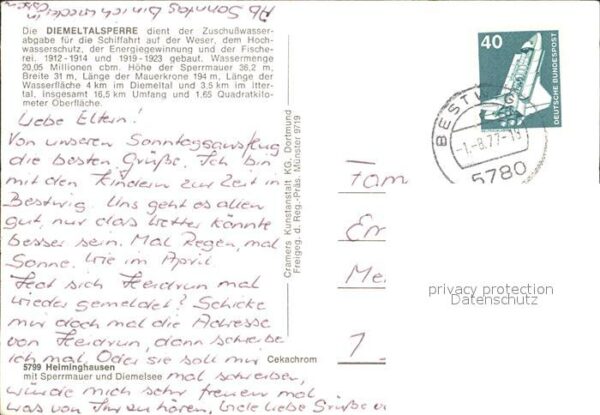 Ab Sonntag bin ich wieder in
Die DIEMELTALSPERRE dient der Zuschußwasser-
abgabe für die Schiffahrt auf der Weser, dem Hoch-
wasserschutz, der Energiegewinnung und der Fische-
rei. 1912-1914 und 1919-1923 gebaut. Wassermenge
20,05 Millionen cbm. Höhe der Sperrmauer 36,2 m,
Breite 31 m, Länge der Mauerkrone 194 m, Länge der
Wasserfläche 4 km im Diemeltal und 3,5 km im Itter-
tal, insgesamt 16,5 km Umfang und 1,65 Quadratkilo-
meter Oberfläche.
Liebe Eltern!
Von unseren Sonntagsausflug
die besten Grüße. Ich bin
mit den Kindern zur Zeit in
Bestwig. Uns geht es allen
gut, nur das Wetter könnte
besser sein. Mal Regen, mal
Sonne. Wie im April
Hat sich Heidrun mal
wieder gemeldet? Schicke
mir doch mal die Adresse
von Heidrun, dann schreibe
ich mal. Oder sie soll mir
5799 Helminghausen
Cekachrom
mit Sperrmauer und Diemelsee
mal schreiben,
würde mich sehr freuen mal
was von Ihr zu hören, Viele liebe Grüße
Cramers Kunstanstalt KG. Dortmund
Freigeg. d. Reg.-Präs. Münster 9719
40
DEUTSCHE BUNDESPOST
BESTWIG
-1.-8.77-19
5780
Fam
Em
Me
1
privacy protection
Datenschutz